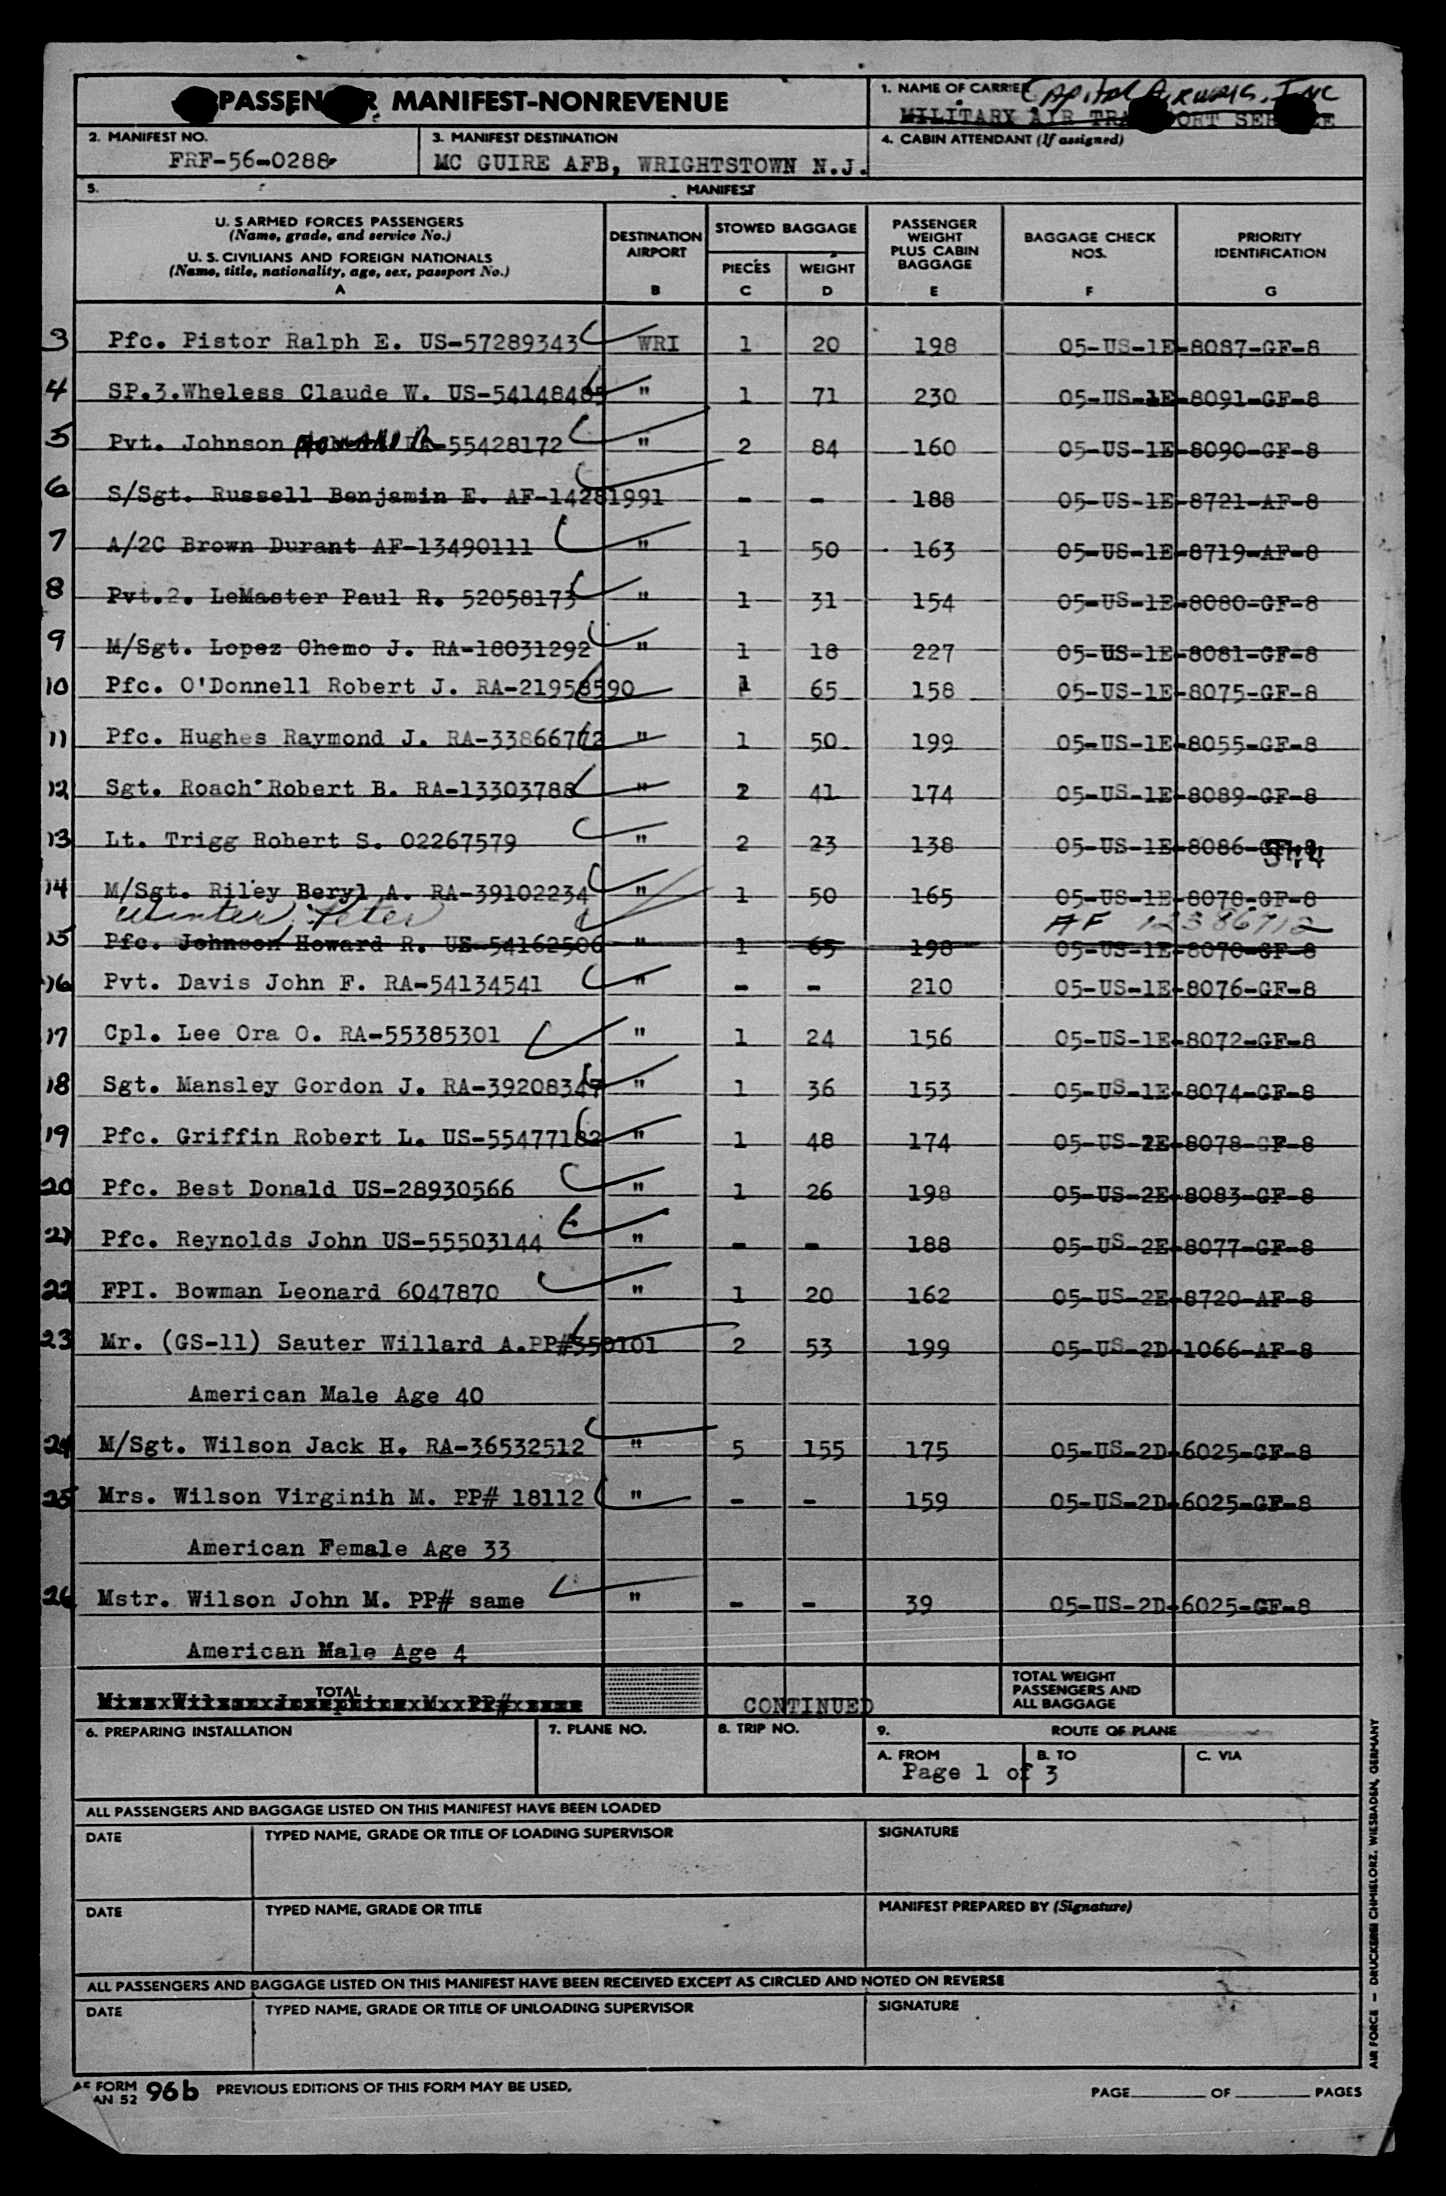 PASSENGER MANIFEST-NONREVENUE
1. NAME OF CARRIER Capitol Airways, Inc
MILITARY AIR TRANSPORT SERVICE
2. MANIFEST NO.
FRF-56-0288
3. MANIFEST DESTINATION
MC GUIRE AFB, WRIGHTSTOWN N.J.
4. CABIN ATTENDANT (If assigned)
5. MANIFEST
U. S ARMED FORCES PASSENGERS
(Name, grade, and service No.)
U. S. CIVILIANS AND FOREIGN NATIONALS
(Name, title, nationality, age, sex, passport No.)
A
DESTINATION AIRPORT
B
STOWED BAGGAGE
PIECES
C
WEIGHT
D
PASSENGER WEIGHT PLUS CABIN BAGGAGE
E
BAGGAGE CHECK NOS.
F
PRIORITY IDENTIFICATION
G
3 Pfc. Pistor Ralph E. US-57289343 WRI 1 20 198 05-US-1E-8087-GF-8
4 SP.3.Wheless Claude W. US-54148485 " 1 71 230 05-US-1E-8091-GF-8
5 Pvt. Johnson Howard R -55428172 " 2 84 160 05-US-1E-8090-GF-8
6 S/Sgt. Russell Benjamin E. AF-14281991 - - 188 05-US-1E-8721-AF-8
7 A/2C Brown Durant AF-13490111 " 1 50 163 05-US-1E-8719-AF-8
8 Pvt.2. LeMaster Paul R. 52058173 " 1 31 154 05-US-1E-8080-GF-8
9 M/Sgt. Lopez Chemo J. RA-18031292 " 1 18 227 05-US-1E-8081-GF-8
10 Pfc. O'Donnell Robert J. RA-21958590 1 65 158 05-US-1E-8075-GF-8
11 Pfc. Hughes Raymond J. RA-33866772 " 1 50 199 05-US-1E-8055-GF-8
12 Sgt. Roach Robert B. RA-13303788 " 2 41 174 05-US-1E-8089-GF-8
13 Lt. Trigg Robert S. 02267579 " 2 23 138 05-US-1E-8086-GF-8
14 M/Sgt. Riley Beryl A. RA-39102234 " 1 50 165 05-US-1E-8078-GF-8
Winter, Peter AF 12386712
15 Pfc. Johnson Howard R. US-54162506 " 1 65 198 05-US-1E-8070-GF-8
16 Pvt. Davis John F. RA-54134541 " - - 210 05-US-1E-8076-GF-8
17 Cpl. Lee Ora O. RA-55385301 " 1 24 156 05-US-1E-8072-GF-8
18 Sgt. Mansley Gordon J. RA-39208347 " 1 36 153 05-US-1E-8074-GF-8
19 Pfc. Griffin Robert L. US-55477182 " 1 48 174 05-US-2E-8078-GF-8
20 Pfc. Best Donald US-28930566 " 1 26 198 05-US-2E-8083-GF-8
21 Pfc. Reynolds John US-55503144 " - - 188 05-US-2E-8077-GF-8
22 FPI. Bowman Leonard 6047870 " 1 20 162 05-US-2E-8720-AF-8
23 Mr. (GS-11) Sauter Willard A.PP#350101 2 53 199 05-US-2D-1066-AF-8
American Male Age 40
24 M/Sgt. Wilson Jack H. RA-36532512 " 5 155 175 05-US-2D-6025-GF-8
25 Mrs. Wilson Virginih M. PP# 18112 " - - 159 05-US-2D-6025-GF-8
American Female Age 33
26 Mstr. Wilson John M. PP# same " - - 39 05-US-2D-6025-GF-8
American Male Age 4
TOTAL
CONTINUED
TOTAL WEIGHT PASSENGERS AND ALL BAGGAGE
6. PREPARING INSTALLATION
7. PLANE NO.
8. TRIP NO.
9. ROUTE OF PLANE
A. FROM B. TO C. VIA
Page 1 of 3
ALL PASSENGERS AND BAGGAGE LISTED ON THIS MANIFEST HAVE BEEN LOADED
DATE TYPED NAME, GRADE OR TITLE OF LOADING SUPERVISOR SIGNATURE
DATE TYPED NAME, GRADE OR TITLE MANIFEST PREPARED BY (Signature)
ALL PASSENGERS AND BAGGAGE LISTED ON THIS MANIFEST HAVE BEEN RECEIVED EXCEPT AS CIRCLED AND NOTED ON REVERSE
DATE TYPED NAME, GRADE OR TITLE OF UNLOADING SUPERVISOR SIGNATURE
FORM 96b PREVIOUS EDITIONS OF THIS FORM MAY BE USED.
AN 52
PAGE OF PAGES
AIR FORCE — DRUCKEREI CHMIELORZ, WIESBADEN, GERMANY